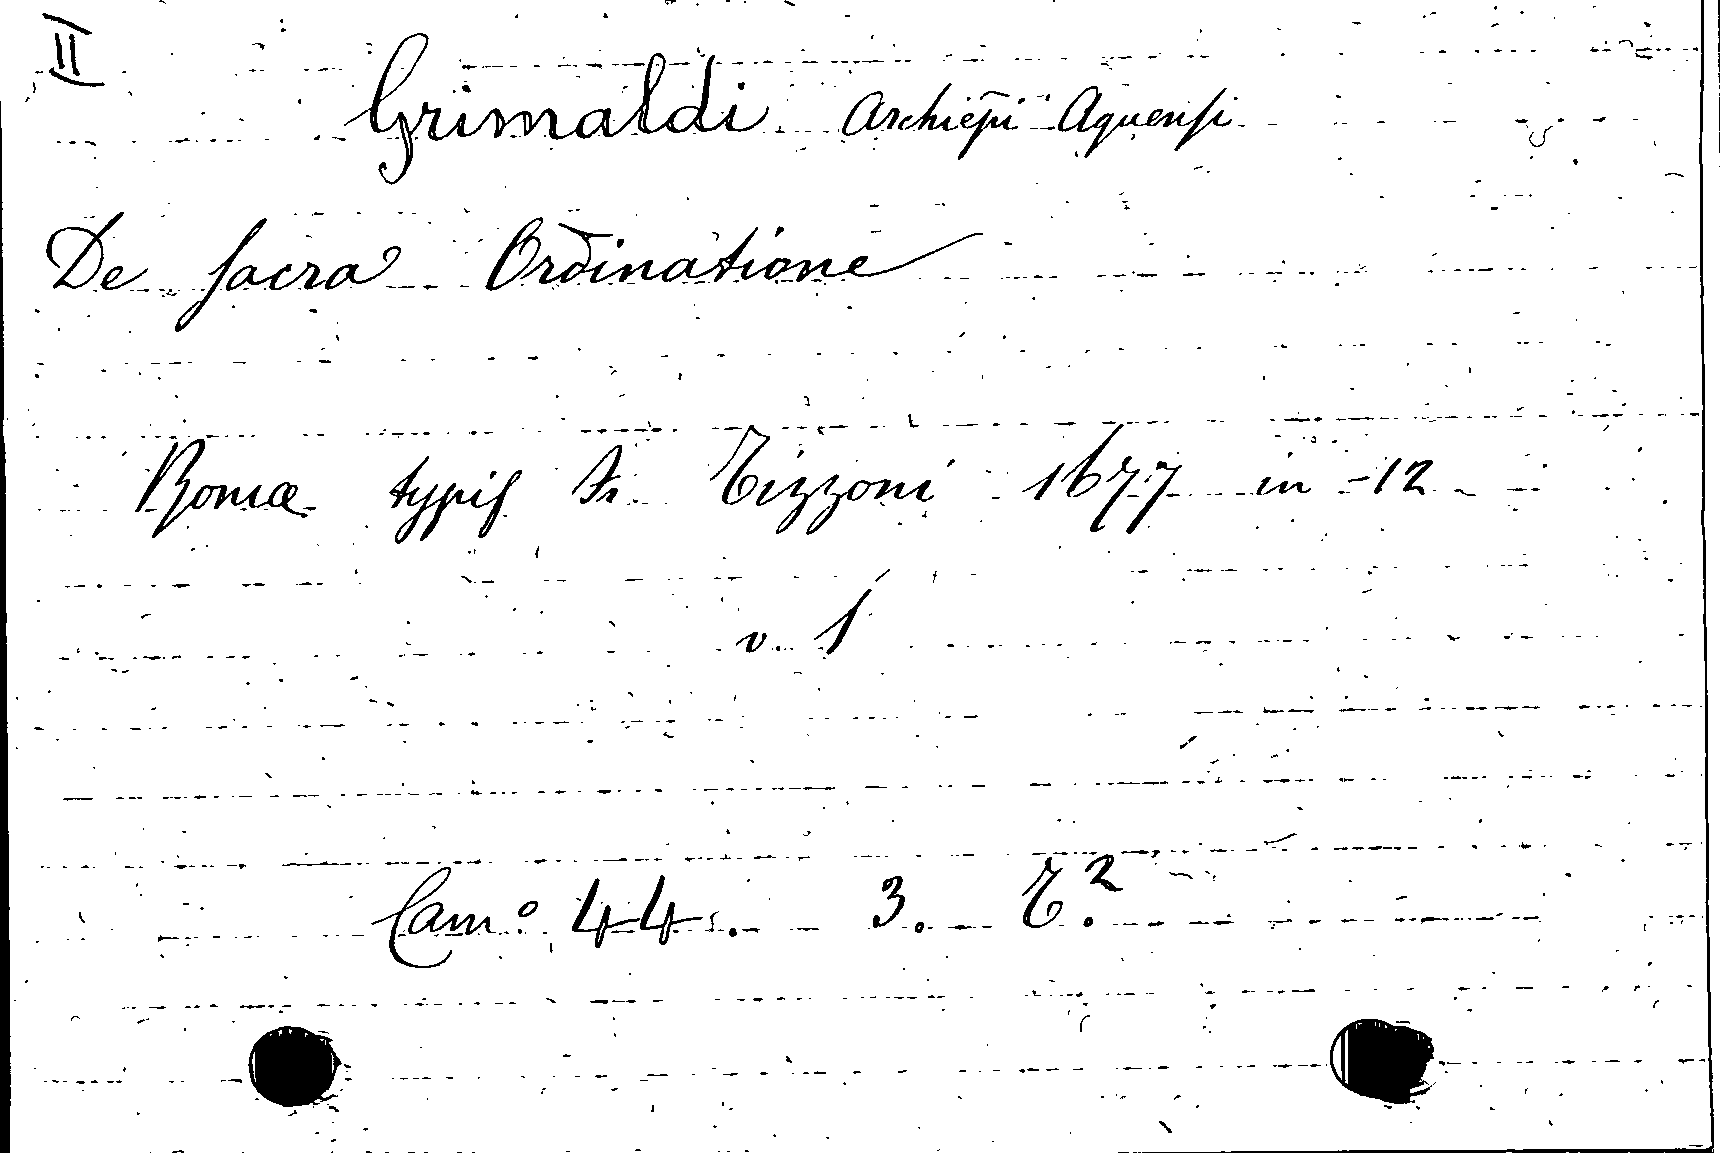 II
Grimaldi Archiepi Aquensi
De sacra Ordinatione
Romæ typis Fr. Tizzoni 1677 in-12
v. 1
Cam.º 44. 3. T.²